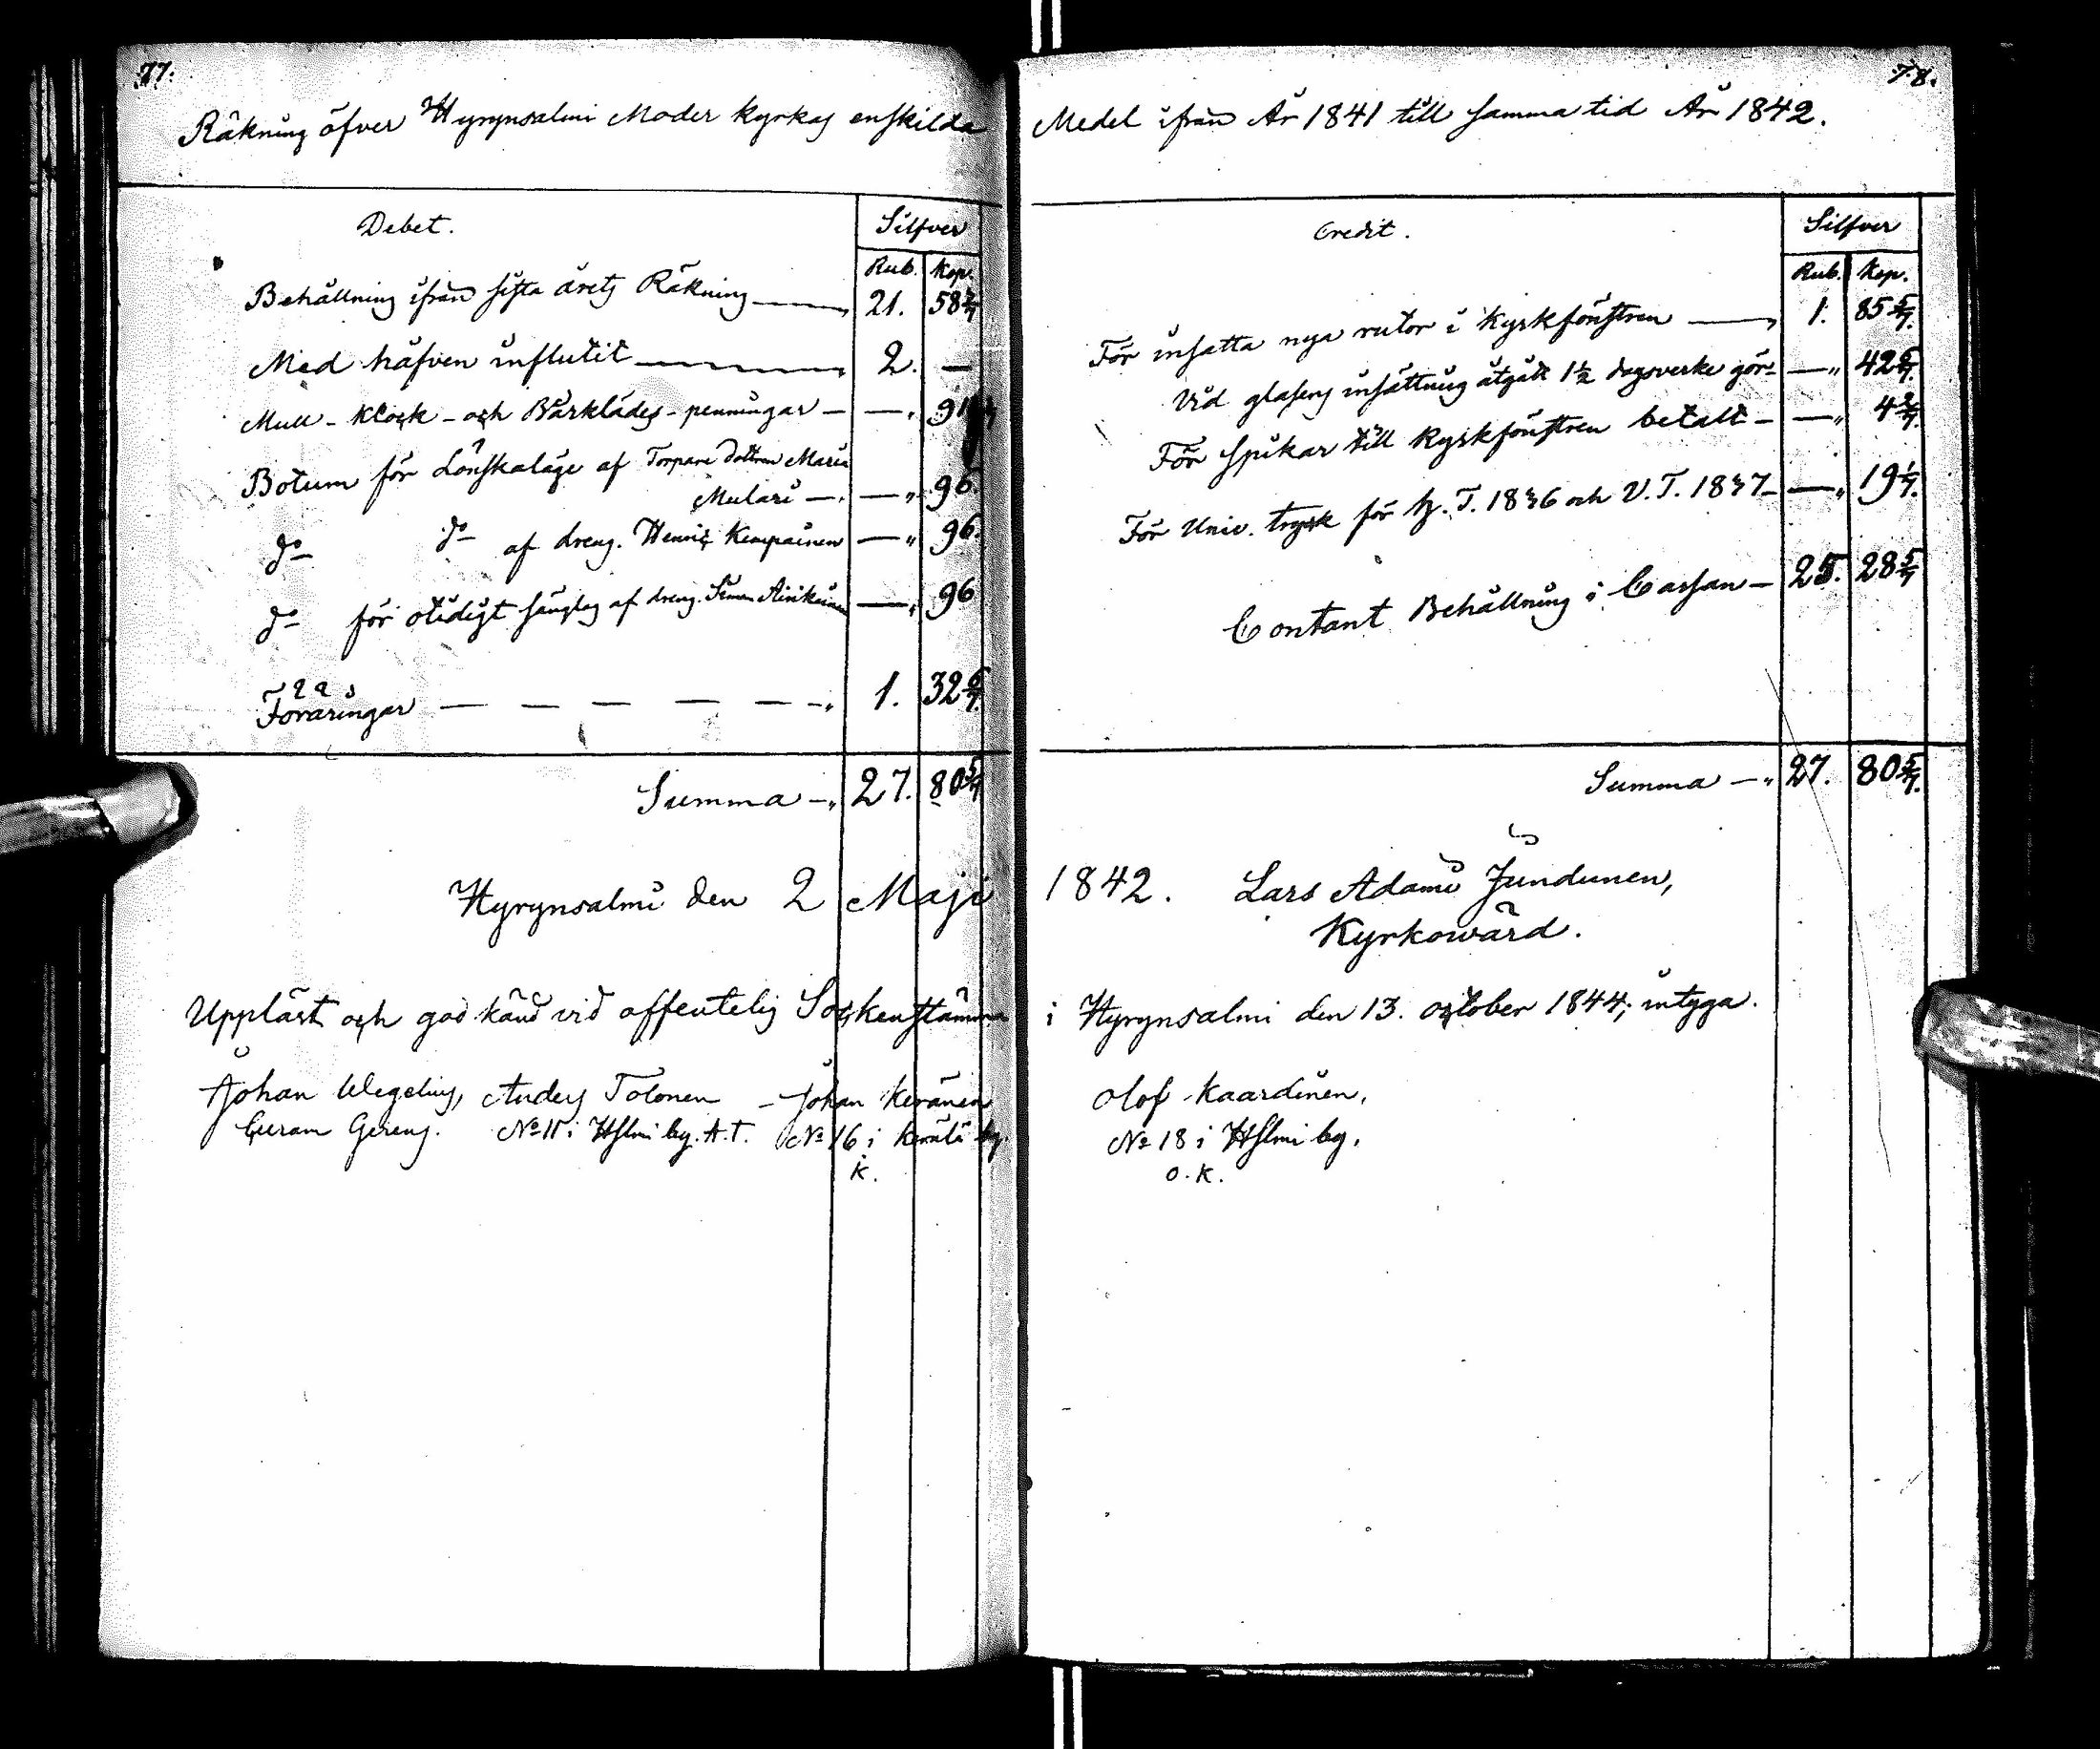 77.
Räkning öfver Hyrynsalmi Moder kyrkas enskilda
Debet.
Silfver
Rub. Kop.
Behållning ifrån sista årets Räkning — 21. 58 4/7
Med håfven influtit — 2. —
Mull-Klock- och Bårklädes-penningar — —
Botum för Lönskaläge af Torpare dottren Maria
Mulari — — 96.
do do af dreng. Henric Kempainen — 96.
do för otidigt sänglag af dreng. Simon — 96
Foräringar — — — — — 1. 32 6/7.
Summa — 27. 80 5/7
Hyrynsalmi den 2 Maji
Uppläst och god känd vid offentelig Sockenstämma
Johan Wegelius, Anders Tolonen — Johan Keränen
Curam Gerens. No 11 i Hslmi by. A.T. No 16 i Kerälä by.
K.
78.
Medel ifrån År 1841 till samma tid År 1842.
Credit.
Silfver
Rub. Kop.
För insatta nya rutor i Kyrkfönstren — 1. 85 5/7.
Vid glasens insättning åtgått 1 1/2 dagsverke gör — 42 6/7.
För spikar till Kyrkfönstren betalt — — 4 2/7.
För Univ. tryck för H.T. 1836 och V.T. 1837 — — 19 1/7.
Contant Behållning i Cassan — 25. 28 5/7
Summa — 27. 80 5/7.
1842. Lars Adami Jundunen,
Kyrkowärd.
i Hyrynsalmi den 13. october 1844; intyga.
Olof Kaardinen,
No 18 i Hslmi by.
O.K.